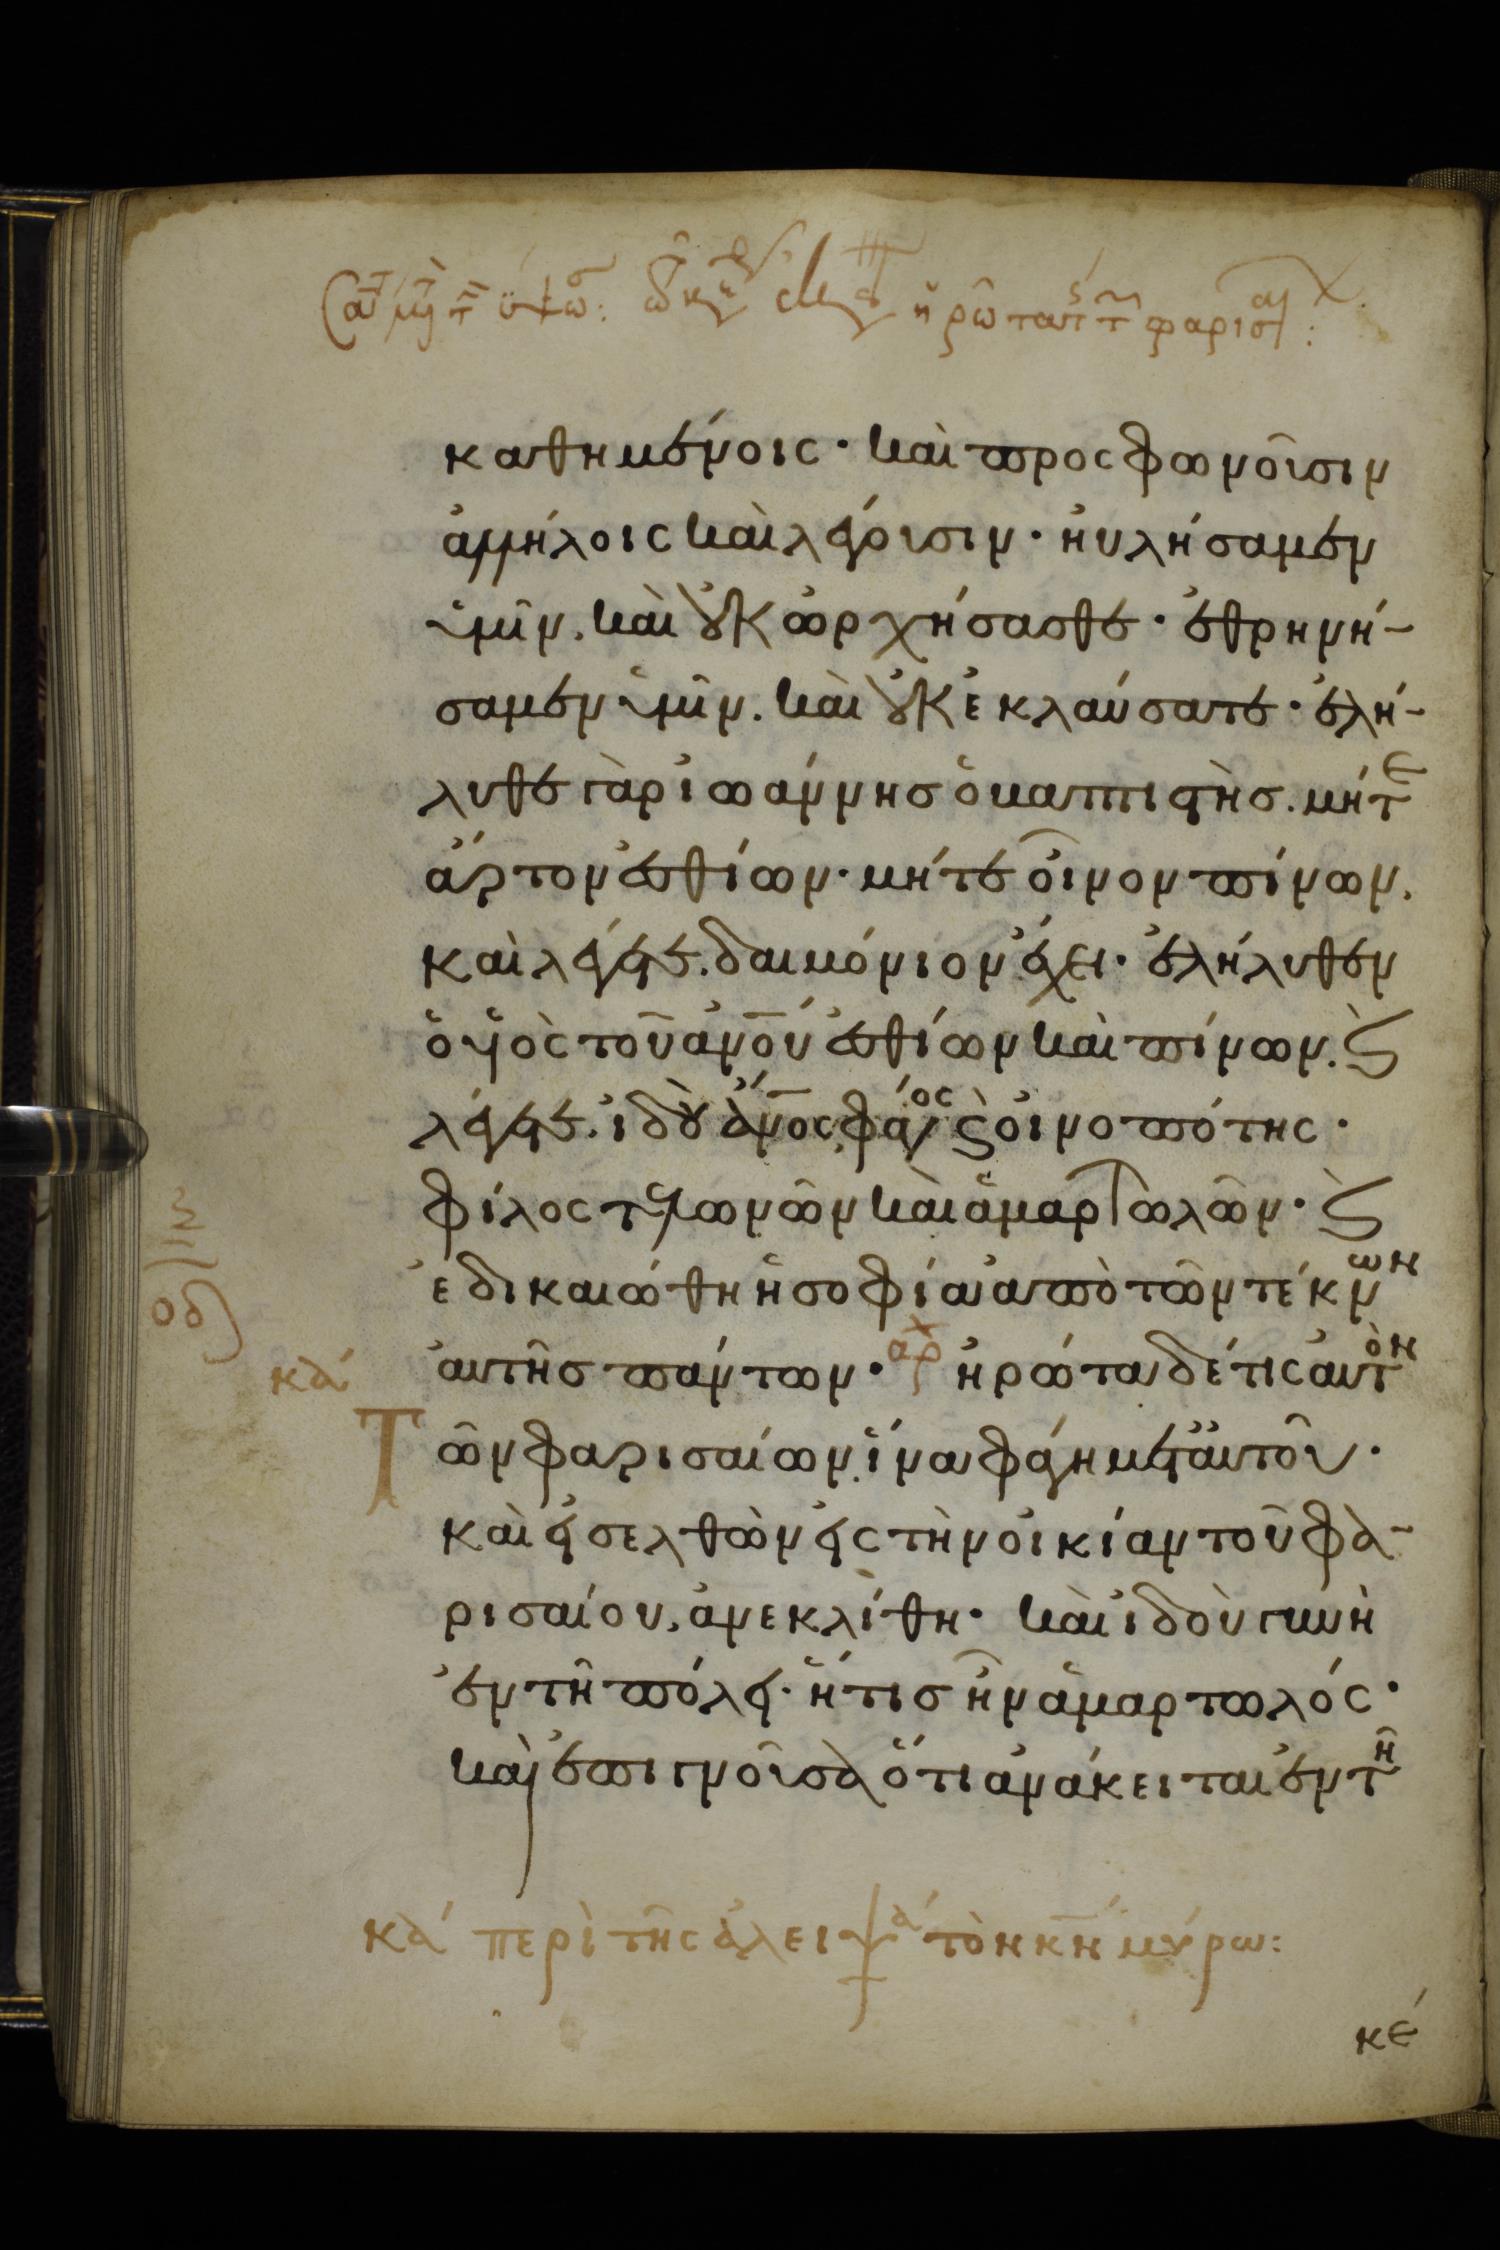 ἠρώτα τ τ φαρισαι
καθημένοις· καὶ προσφωνοῦσιν
ἀλλήλοις καὶ λέγουσιν· ηὐλήσαμεν
ὑμῖν. καὶ οὐκ ὠρχήσασθε· ἐθρηνή-
σαμεν ὑμῖν. καὶ οὐκ ἐκλαύσατε· ἐλή-
λυθε γὰρ ἰωάννησ ὁ βαπτιστὴσ. μήτε
ἄρτον ἐσθίων· μήτε οἶνον πίνων.
καὶ λέγετε. δαιμόνιον ἔχει· ἐλήλυθεν
ὁ υἱὸς τοῦ ἀνου ἐσθίων καὶ πίνων. ϗ
λέγετε. ἰδοὺ ἄνος φάγος ϗ οἰνοπότης·
φίλος τελωνῶν καὶ ἁμαρτωλῶν· ϗ
ἐδικαιώθη ἡ σοφία ἀπὸ τῶν τέκνων
αὐτῆσ πάντων· αρχ ἠρώτα δέ τις αὐτὸν
κα
οδ
Τῶν φαρισαίων, ἵνα φάγη μετ᾽ αὐτοῦ·
καὶ εἰσελθὼν εἰς τὴν οἰκίαν τοῦ φα-
ρισαίου, ἀνεκλίθη· καὶ ἰδοὺ γυνὴ
ἐν τῆ πόλει· ἥτισ ἦν ἁμαρτωλός·
καὶ ἐπιγνοῦσα ὅτι ἀνάκειται ἐν τῆ
κα περὶ τῆς ἀλειψά τὸν κν μύρω:
κε